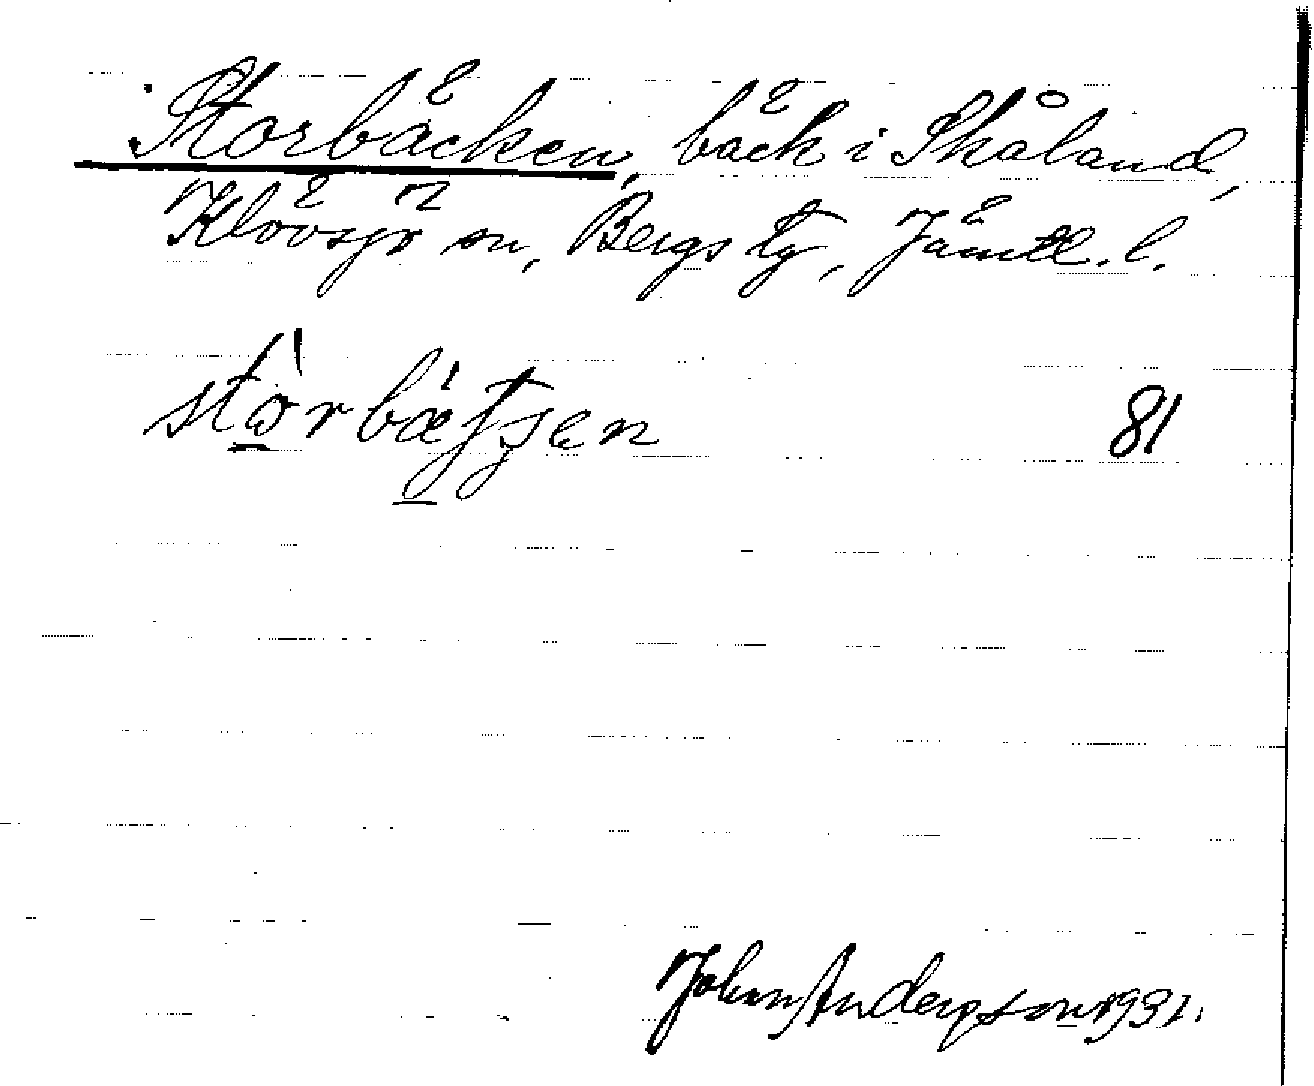 Storbäcken, bäck i Skåland,
Klövsjö sn, Bergs tg, Jämtl. l.
81
Johan Andersson 1931.